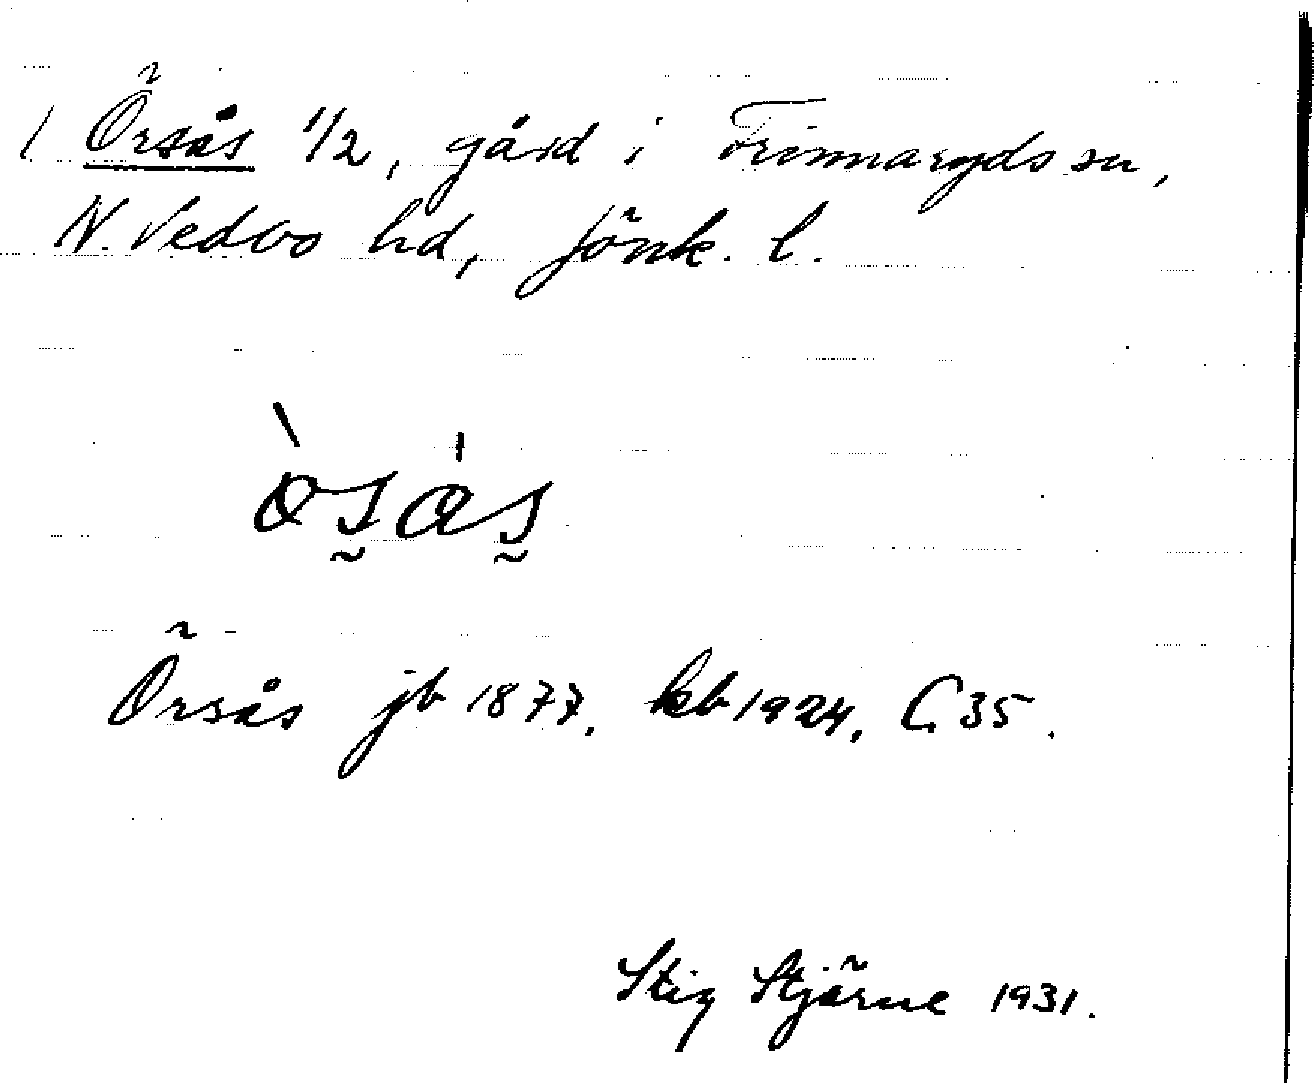 1 Örsås 1/2, gård i Frinnaryds sn,
N. Vedbo hd, Jönk. l.
Örsås jb 1877. kb 1924, C 35.
Stig Stjärne 1931.